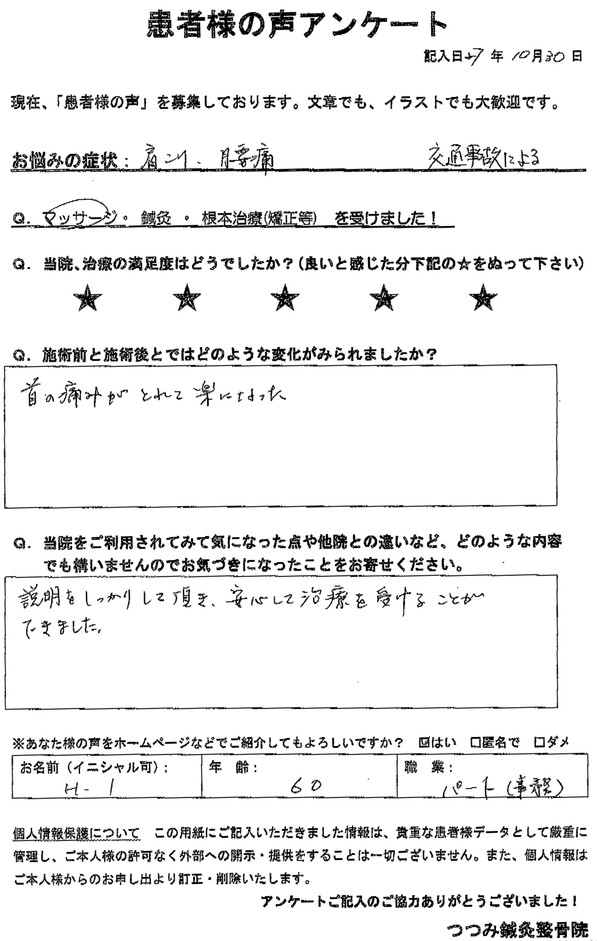 患者様の声アンケート
記入日27年10月30日
現在、「患者様の声」を募集しております。文章でも、イラストでも大歓迎です。
お悩みの症状：肩こり、腰痛 交通事故による
Q. マッサージ・鍼灸・根本治療(矯正等) を受けました！
Q. 当院、治療の満足度はどうでしたか？（良いと感じた分下記の☆をぬって下さい）
★ ★ ★ ★ ★
Q. 施術前と施術後とではどのような変化がみられましたか？
首の痛みがとれて楽になった
Q. 当院をご利用されてみて気になった点や他院との違いなど、どのような内容
でも構いませんのでお気づきになったことをお寄せください。
説明をしっかりして頂き、安心して治療を受けることが
できました。
※あなた様の声をホームページなどでご紹介してもよろしいですか？ ☑はい □匿名で □ダメ
お名前（イニシャル可）： 年 齢： 職 業：
H-I 60 パート（事務）
個人情報保護について この用紙にご記入いただきました情報は、貴重な患者様データとして厳重に
管理し、ご本人様の許可なく外部への開示・提供をすることは一切ございません。また、個人情報は
ご本人様からのお申し出より訂正・削除いたします。
アンケートご記入のご協力ありがとうございました！
つつみ鍼灸整骨院